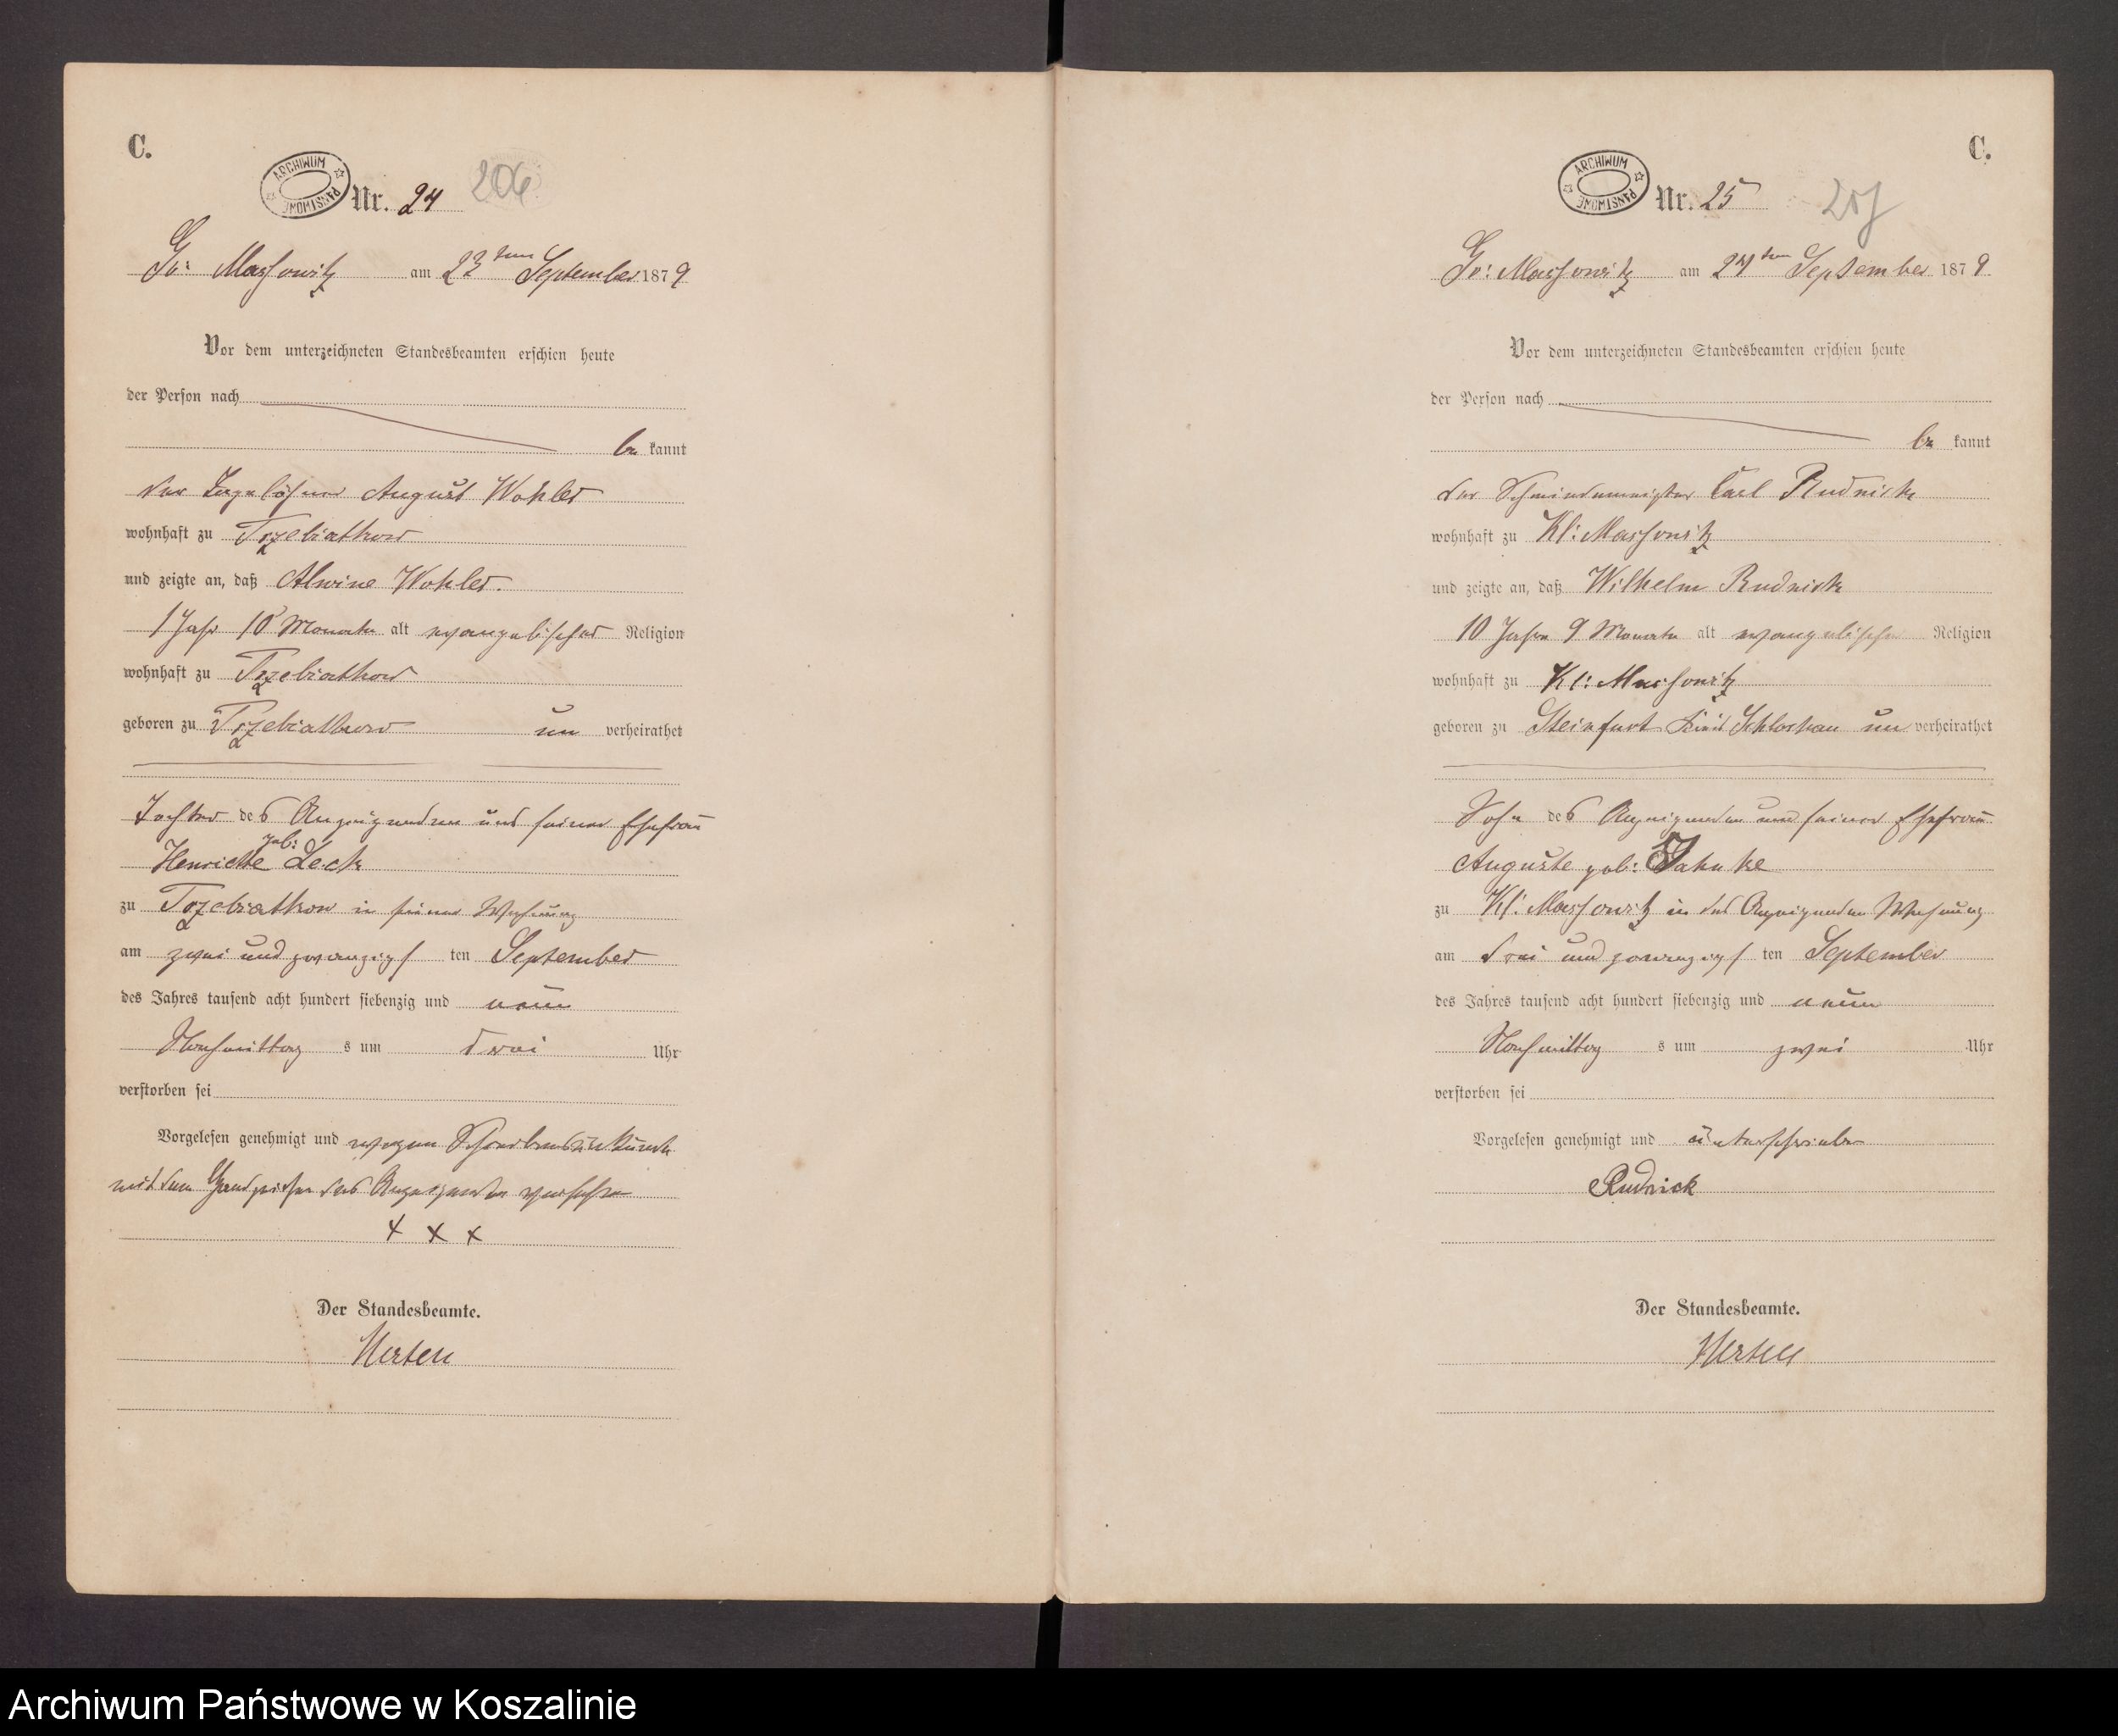 C.
ARCHIWUM PAŃSTWOWE
Nr. 24
206
Gr: Massowitz am 23ten September 1879
Vor dem unterzeichneten Standesbeamten erschien heute
der Person nach
be kannt
der Tagelöhner August Wohler
wohnhaft zu Trzebiatkow
und zeigte an, daß Alwine Wohler.
1 Jahr 10 Monate alt evangelischer Religion
wohnhaft zu Trzebiatkow
geboren zu Trzebiatkow un verheirathet
Tochter des Anzeigenden und seiner Ehefrau
Henriette geb: Leck
zu Trzebiatkow in seiner Wohnung
am zwei und zwanzigs ten September
des Jahres tausend acht hundert siebenzig und neun
Nachmittag s um drei Uhr
verstorben sei
Vorgelesen genehmigt und wegen Schreibensunkunde
mit dem Handzeichen des Anzeigenden versehen
+ x x
Der Standesbeamte.
C.
ARCHIWUM PAŃSTWOWE
Nr. 25
207
Gr: Massowitz am 24ten September 1879
Vor dem unterzeichneten Standesbeamten erschien heute
der Person nach
be kannt
der Schmiedemeister Carl Rudnick
wohnhaft zu Kl: Massowitz
und zeigte an, daß Wilhelm Rudnick
10 Jahre 9 Monate alt evangelischer Religion
wohnhaft zu Kl: Massowitz
geboren zu Steinfurt Kreis Schlochau un verheirathet
Sohn des Anzeigenden und seiner Ehefrau
Auguste geb: Jahnke
zu Kl: Massowitz in des Anzeigenden Wohnung
am drei und zwanzigs ten September
des Jahres tausend acht hundert siebenzig und neun
Nachmittag s um zwei Uhr
verstorben sei
Vorgelesen genehmigt und unterschrieben
Rudnick
Der Standesbeamte.
Archiwum Państwowe w Koszalinie